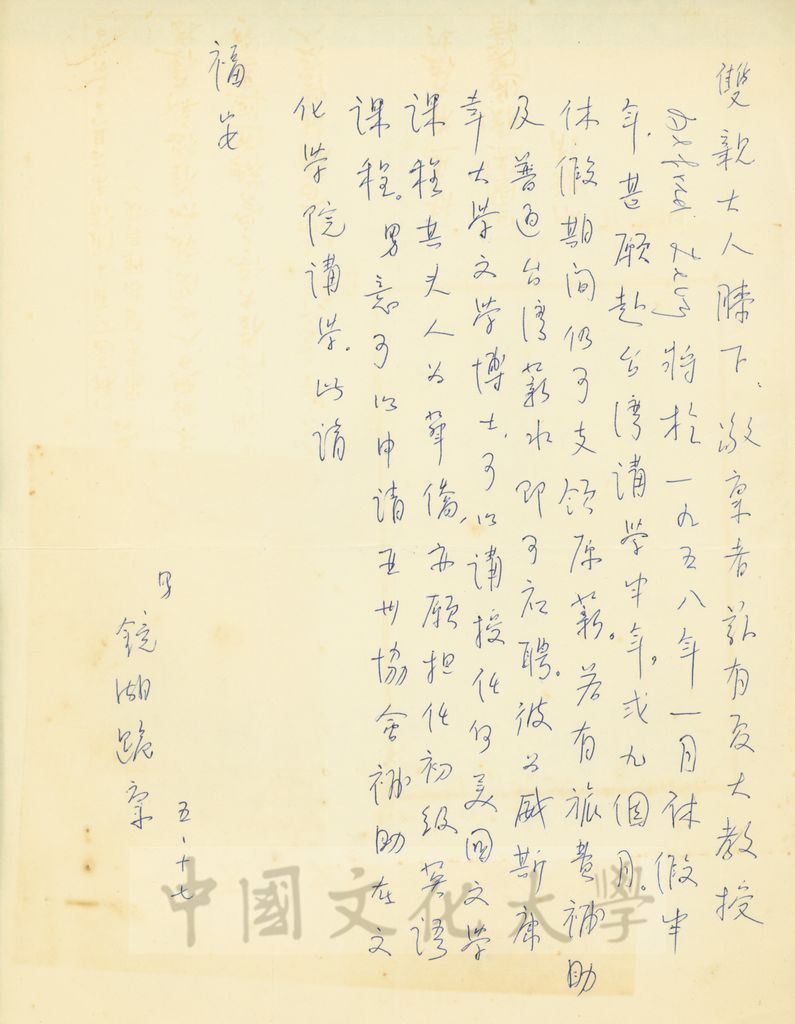 雙親大人膝下、敬稟者茲有夏大教授
將於一九五八年一月休假半
年．甚願赴台灣講學半年，或九個月。
休假期间仍可支領原薪。若有旅費補助
及普通台灣薪水即可应聘。彼为威斯康
幸大學文學博士，可以講授任何美國文學
課程其夫人为華僑，亦願担任初級英語
課程。男意可以申請亚州協會補助在文
化學院講學．此請
福安
男
鏡湖跪稟
五、十七
中國文化大學